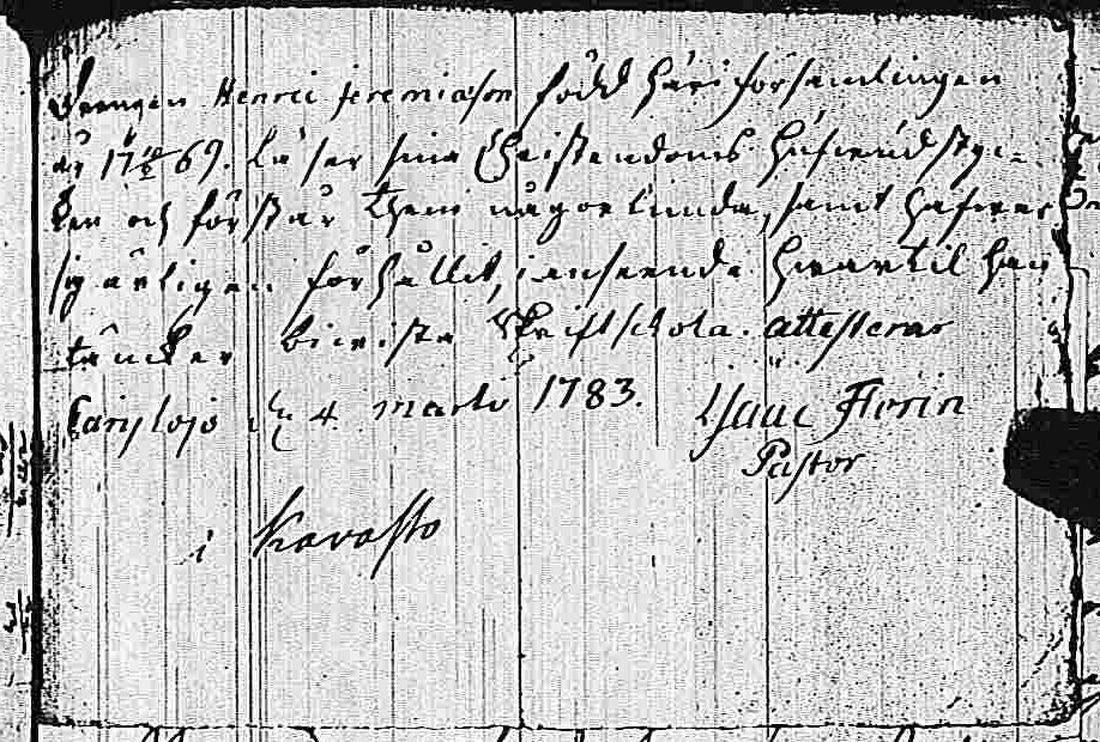 Drengen Henric Jeremiæson född här i församlingen
år 17 69. Läser sina Christendoms hufvudstyc=
ken och förstår them någorlunda, samt hafver
sig ärligen förhållit, i anseende hvartil han
täncker bivista Skriftskola. attesterar
Carislojo d. 4 Martii 1783. Isaac Florin
Pastor
i Kavasto